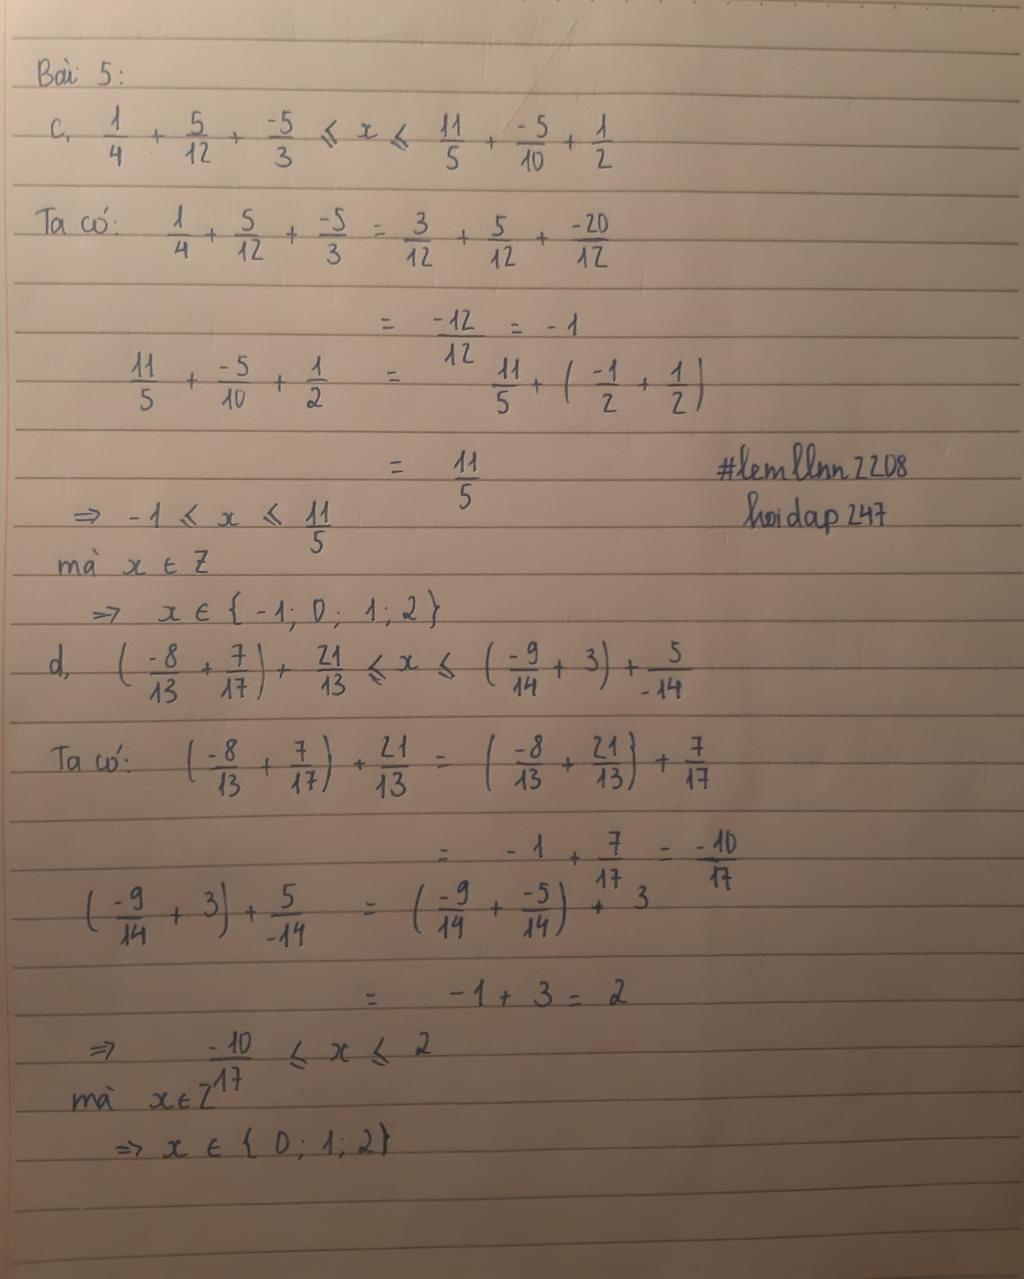 Bài 5:
c, 1/4 + 5/12 + -5/3 ⩽ x ⩽ 11/5 + -5/10 + 1/2
Ta có: 1/4 + 5/12 + -5/3 = 3/12 + 5/12 + -20/12
= -12/12 = -1
11/5 + -5/10 + 1/2 = 11/5 + (-1/2 + 1/2)
= 11/5
#lemllnn2208
⇒ -1 ⩽ x ⩽ 11/5
hoidap247
mà x ∈ Z
⇒ x ∈ {-1; 0; 1; 2}
d, (-8/13 + 7/17) + 21/13 ⩽ x ⩽ (-9/14 + 3) + 5/-14
Ta có: (-8/13 + 7/17) + 21/13 = (-8/13 + 21/13) + 7/17
= -1 + 7/17 = -10/17
(-9/14 + 3) + 5/-14 = (-9/14 + -5/14) + 3
= -1 + 3 = 2
⇒ -10/17 ⩽ x ⩽ 2
mà x ∈ Z
⇒ x ∈ {0; 1; 2}